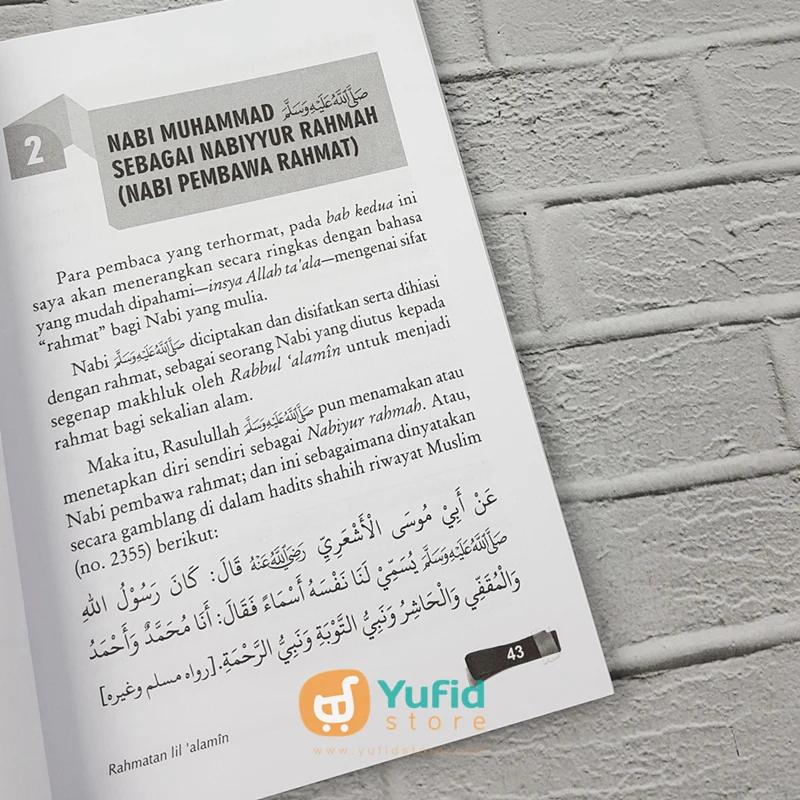 2
NABI MUHAMMAD ﷺ
SEBAGAI NABIYYUR RAHMAH
(NABI PEMBAWA RAHMAT)
Para pembaca yang terhormat, pada bab kedua ini
saya akan menerangkan secara ringkas dengan bahasa
yang mudah dipahami—insya Allah ta'ala—mengenai sifat
“rahmat” bagi Nabi yang mulia.
Nabi ﷺ diciptakan dan disifatkan serta dihiasi
dengan rahmat, sebagai seorang Nabi yang diutus kepada
segenap makhluk oleh Rabbul ‘alamîn untuk menjadi
rahmat bagi sekalian alam.
Maka itu, Rasulullah ﷺ pun menamakan atau
menetapkan diri sendiri sebagai Nabiyur rahmah. Atau,
Nabi pembawa rahmat; dan ini sebagaimana dinyatakan
secara gamblang di dalam hadits shahih riwayat Muslim
(no. 2355) berikut:
عَنْ أَبِيْ مُوْسَى الْأَشْعَرِيِّ رَضِيَ اللَّهُ عَنْهُ قَالَ: كَانَ رَسُوْلُ اللهِ
ﷺ يُسَمِّيْ لَنَا نَفْسَهُ أَسْمَاءً فَقَالَ: أَنَا مُحَمَّدٌ وَأَحْمَدُ
وَالْمُقَفِّي وَالْحَاشِرُ وَنَبِيُّ التَّوْبَةِ وَنَبِيُّ الرَّحْمَةِ. [رواه مسلم وغيره]
43
Rahmatan lil ’alamîn
Yufid
store
www.yufidstore